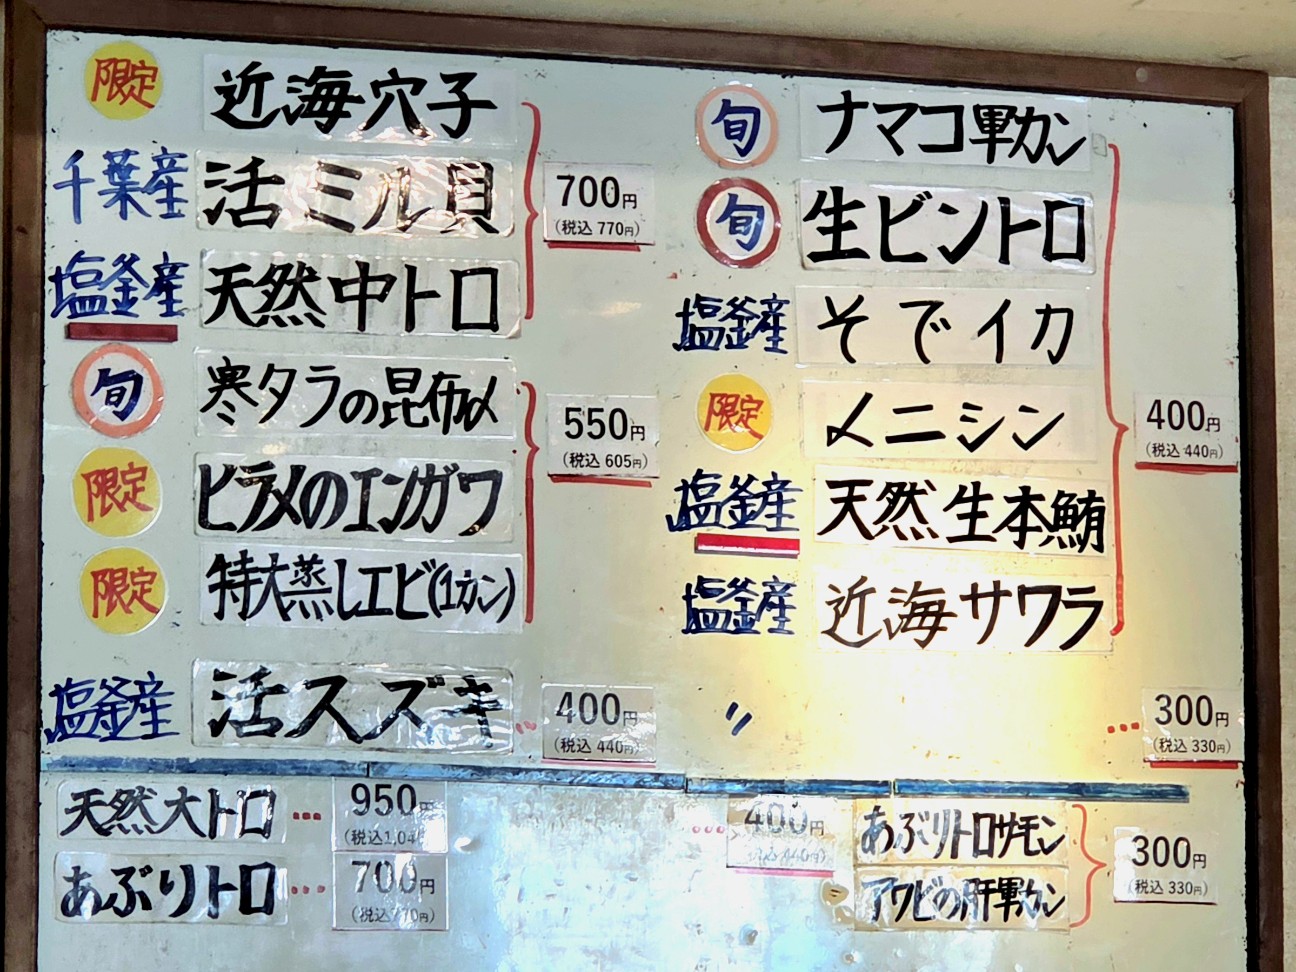 限定 近海穴子
千葉産 活ミル貝
700円
(税込 770円)
塩釜産 天然中トロ
旬 寒タラの昆布〆
限定 ヒラメのエンガワ
550円
(税込 605円)
限定 特大蒸しエビ(1カン)
塩釜産 活スズキ
400円
(税込 440円)
旬 ナマコ軍カン
旬 生ビントロ
塩釜産 そでイカ
限定 〆ニシン
400円
(税込 440円)
塩釜産 天然生本鮪
塩釜産 近海サワラ
〃
300円
(税込 330円)
天然大トロ
950円
(税込1,04
あぶりトロ
700円
(税込770円)
400円
(税込440円)
あぶりトロサーモン
アワビの肝軍カン
300円
(税込 330円)